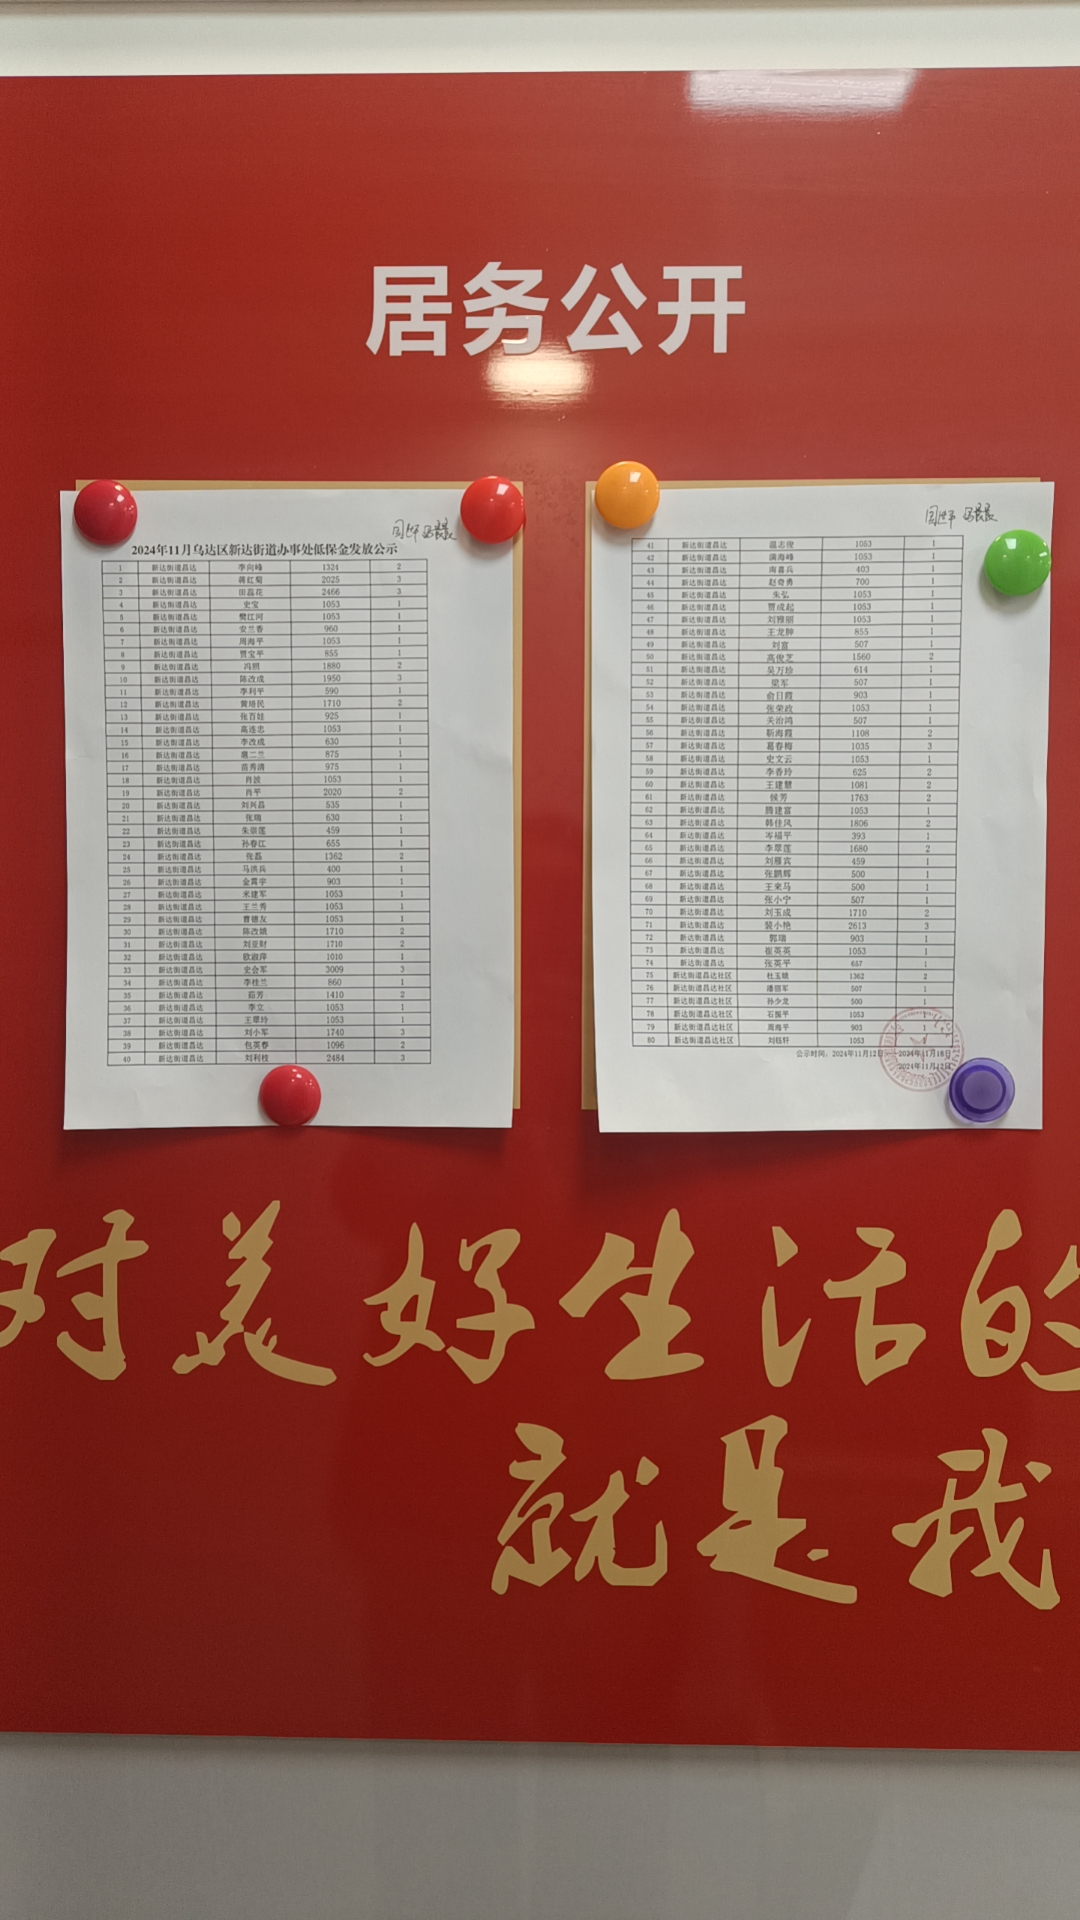 居务公开
2024年11月乌达区新达街道办事处低保金发放公示
1 新达街道昌达 李向峰 1324 2
2 新达街道昌达 蒋红菊 2025 3
3 新达街道昌达 田蕊花 2466 3
4 新达街道昌达 史宝 1053 1
5 新达街道昌达 樊江河 1053 1
6 新达街道昌达 安兰香 960 1
7 新达街道昌达 周海平 1053 1
8 新达街道昌达 贾宝平 855 1
9 新达街道昌达 冯照 1880 2
10 新达街道昌达 陈改成 1950 3
11 新达街道昌达 李利平 590 1
12 新达街道昌达 黄培民 1710 2
13 新达街道昌达 张百娃 925 1
14 新达街道昌达 高连忠 1053 1
15 新达街道昌达 李改成 630 1
16 新达街道昌达 二兰 875 1
17 新达街道昌达 苗秀清 975 1
18 新达街道昌达 肖波 1053 1
19 新达街道昌达 肖平 2020 2
20 新达街道昌达 刘兴昌 535 1
21 新达街道昌达 张瑞 630 1
22 新达街道昌达 朱崇莲 459 1
23 新达街道昌达 孙春江 655 1
24 新达街道昌达 张磊 1362 2
25 新达街道昌达 马洪兵 400 1
26 新达街道昌达 金霄宇 903 1
27 新达街道昌达 米建军 1053 1
28 新达街道昌达 王兰秀 1053 1
29 新达街道昌达 曹德友 1053 1
30 新达街道昌达 陈改娥 1710 2
31 新达街道昌达 刘亚财 1710 2
32 新达街道昌达 欧淑萍 1010 1
33 新达街道昌达 史会军 3009 3
34 新达街道昌达 李桂兰 860 1
35 新达街道昌达 茹芳 1410 2
36 新达街道昌达 李立 1053 1
37 新达街道昌达 王翠玲 1053 1
38 新达街道昌达 刘小军 1740 3
39 新达街道昌达 包英春 1096 2
40 新达街道昌达 刘利枝 2484 3
41 新达街道昌达 温志俊 1053 1
42 新达街道昌达 海峰 1053 1
43 新达街道昌达 南喜兵 403 1
44 新达街道昌达 赵奇勇 700 1
45 新达街道昌达 朱弘 1053 1
46 新达街道昌达 贾成起 1053 1
47 新达街道昌达 刘雅丽 1053 1
48 新达街道昌达 王龙翀 855 1
49 新达街道昌达 刘富 507 1
50 新达街道昌达 高俊芝 1560 2
51 新达街道昌达 吴万珍 614 1
52 新达街道昌达 梁军 507 1
53 新达街道昌达 俞日霞 903 1
54 新达街道昌达 张荣政 1053 1
55 新达街道昌达 关治鸿 507 1
56 新达街道昌达 靳海霞 1108 2
57 新达街道昌达 葛春梅 1035 3
58 新达街道昌达 史文云 1053 1
59 新达街道昌达 李香玲 625 2
60 新达街道昌达 王建慧 1081 2
61 新达街道昌达 侯芳 1763 2
62 新达街道昌达 腾建富 1053 1
63 新达街道昌达 韩佳凤 1806 2
64 新达街道昌达 岑福平 393 1
65 新达街道昌达 李翠莲 1680 2
66 新达街道昌达 刘雁宾 459 1
67 新达街道昌达 张鹏辉 500 1
68 新达街道昌达 王来马 500 1
69 新达街道昌达 张小宁 507 1
70 新达街道昌达 刘玉成 1710 2
71 新达街道昌达 裴小艳 2613 3
72 新达街道昌达 郭瑞 903 1
73 新达街道昌达 崔英英 1053 1
74 新达街道昌达 张英平 657 1
75 新达街道昌达社区 杜玉娥 1362 2
76 新达街道昌达社区 潘丽军 507 1
77 新达街道昌达社区 孙少龙 500 1
78 新达街道昌达社区 石振平 1053 1
79 新达街道昌达社区 周海平 903 1
80 新达街道昌达社区 刘钰轩 1053 1
公示时间：2024年11月12日——2024年11月18日
2024年11月12日
对美好生活的
就是我